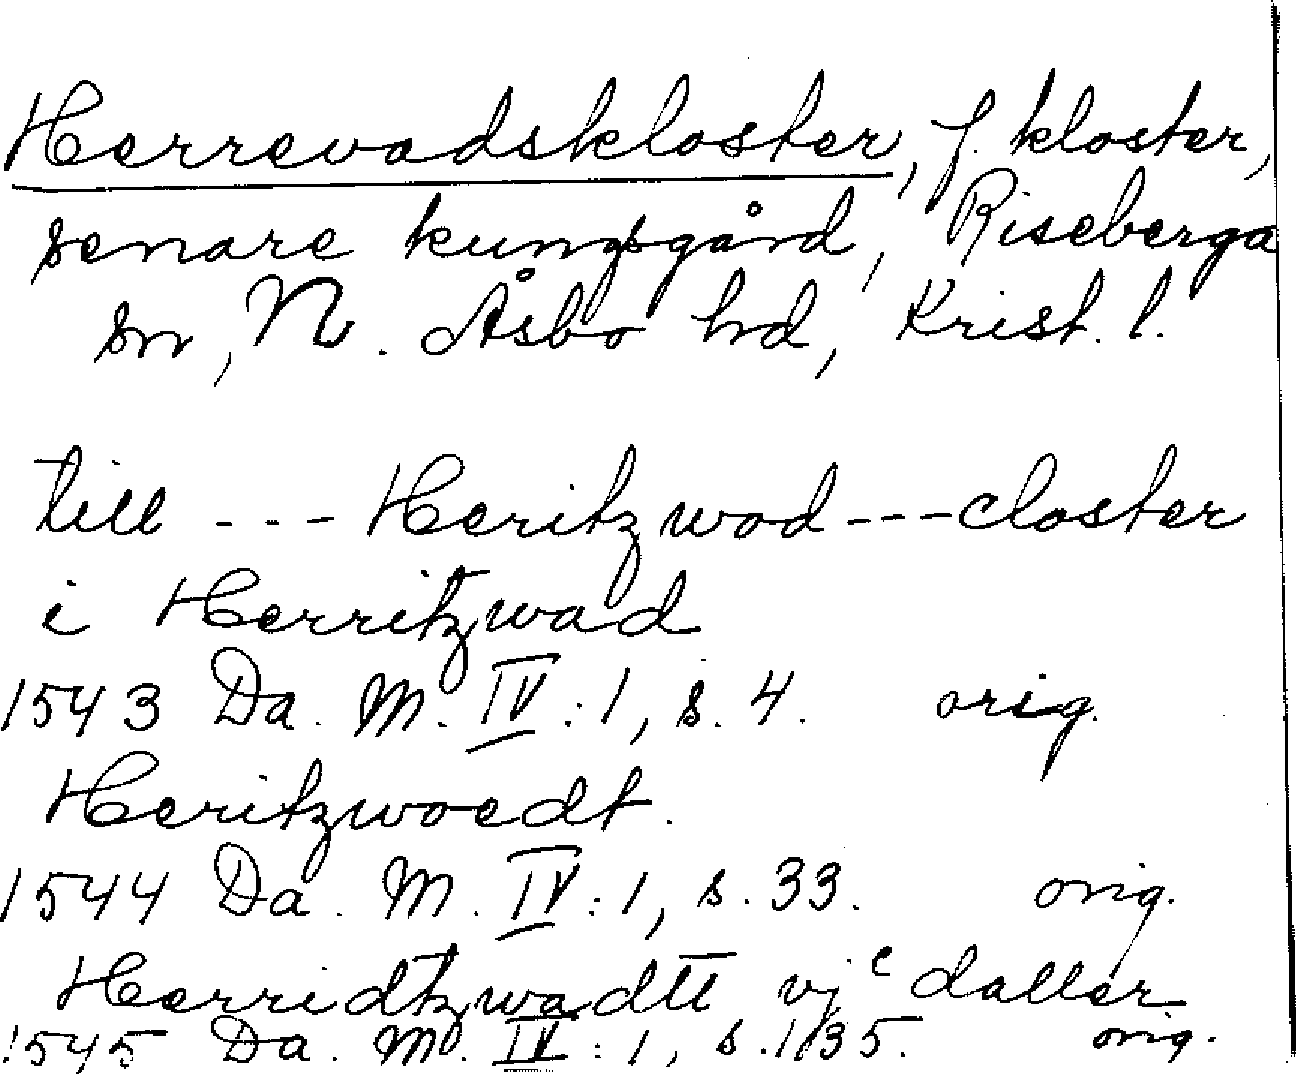 Herrevadskloster, f. kloster,
senare kungsgård, Riseberga
sn, N. Åsbo hd, Krist. l.
till --- Heritzwod --- closter
i Herritzwad
1543 Da. M. IV:1, s. 4. orig.
Heritzwoedt.
1544 Da. M. IV:1, s. 33. orig.
Herridtzwadtt vjc daller
1545 Da. M. IV:1, s. 135. orig.